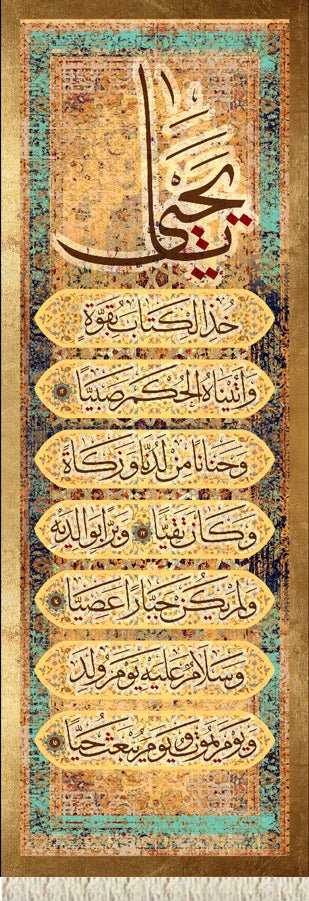 يَا يَحْيَىٰ
خُذِ الْكِتَابَ بِقُوَّةٍ
وَآتَيْنَاهُ الْحُكْمَ صَبِيًّا ١٢
وَحَنَانًا مِّن لَّدُنَّا وَزَكَاةً
وَكَانَ تَقِيًّا ١٣ وَبَرًّا بِوَالِدَيْهِ
وَلَمْ يَكُن جَبَّارًا عَصِيًّا ١٤
وَسَلَامٌ عَلَيْهِ يَوْمَ وُلِدَ
وَيَوْمَ يَمُوتُ وَيَوْمَ يُبْعَثُ حَيًّا ١٥